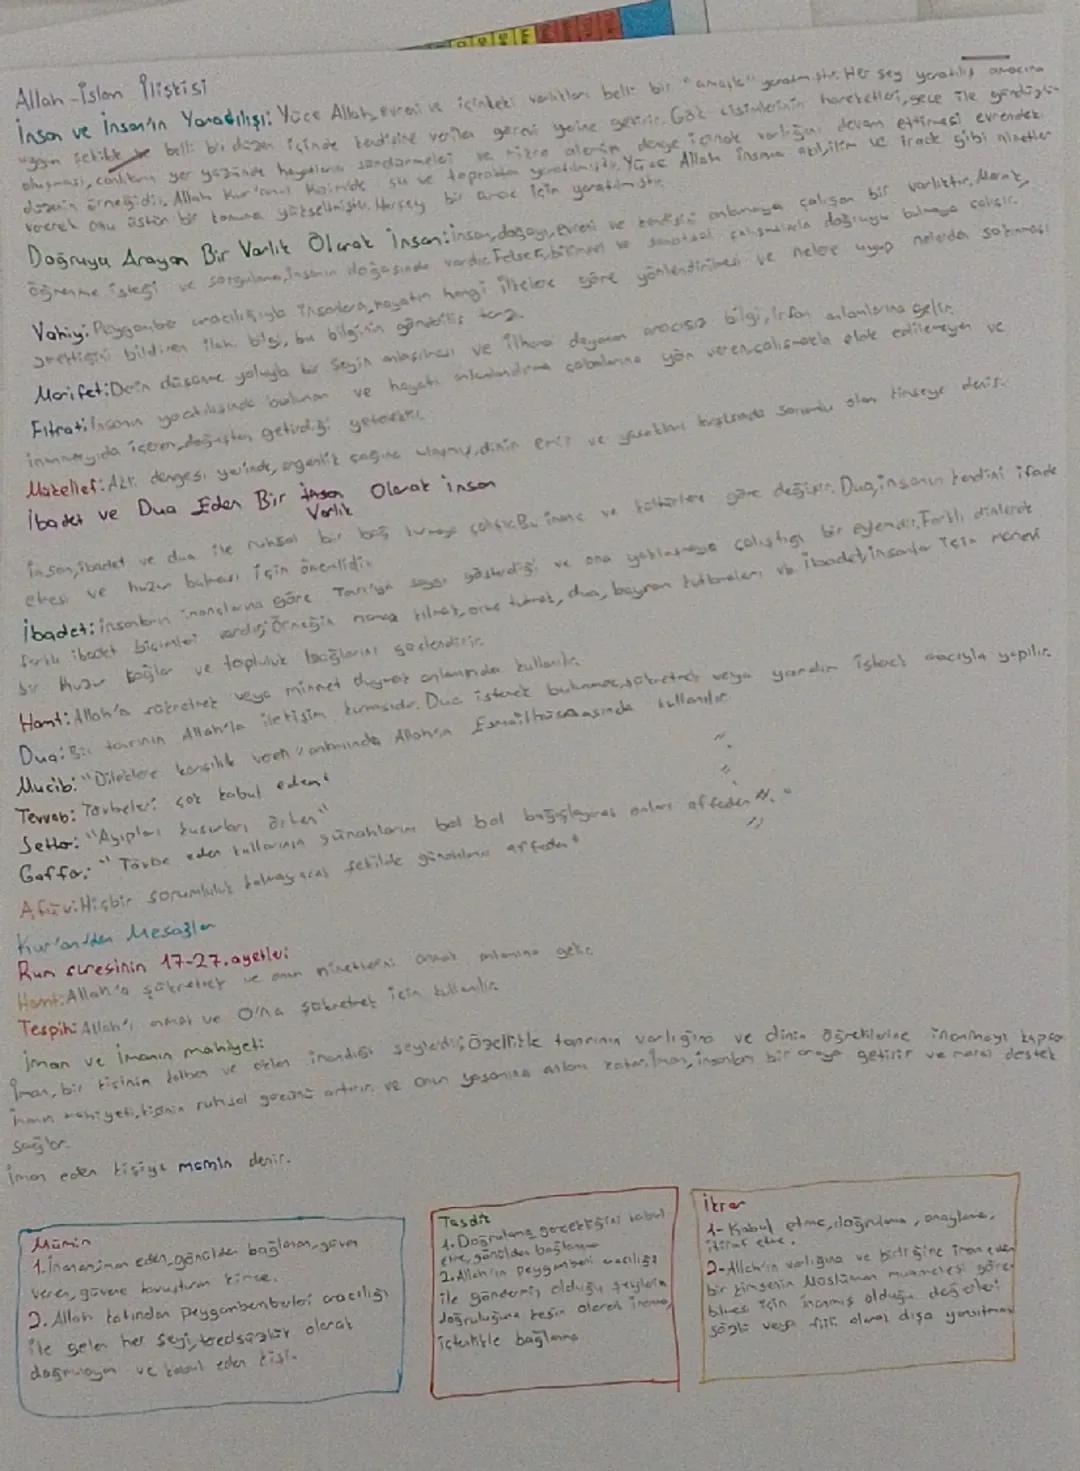 Allah-İslam İlişkisi
İnsan ve İnsan'ın Yaratılışı: Yüce Allah, evreni ve içindeki varlıkları belli bir "amaçla" yaratmıştır. Her şey yaratılış amacına
uygun şekilde belli bir düzen içinde kendisine verilen görevi yerine getirir. Gök cisimlerinin hareketleri, gece ile gündüzün
oluşması, canlıların yer yüzünde hayatlarını sürdürmeleri ve mikro alemin denge içinde varlığını devam ettirmesi evrendeki
düzenin örneğidir. Allah Kur'an-ı Kerim'de su ve topraktan yaratılmıştır. Yüce Allah insana akıl, ilim ve irade gibi nimetler
vererek onu üstün bir konuma yükseltmiştir. Herşey bir amaç için yaratılmıştır.
Doğruyu Arayan Bir Varlık Olarak İnsan: İnsan, doğayı, evreni ve kendisini anlamaya çalışan bir varlıktır. Merak,
öğrenme isteği ve sorgulama, insanın doğasında vardır. Felsefi, bilimsel ve sanatsal çalışmalarla doğruyu bulmaya çalışır.
Vahiy: Peygamber aracılığıyla insanlara, hayatın hangi ilkelere göre yönlendirilmesi ve nelere uyup nelerden sakınması
gerektiğini bildiren ilahi bilgi, bu bilginin gönderiliş tarzı.
Marifet: Derin düşünme yoluyla bir şeyin anlaşılması ve ilhama dayanan aracısız bilgi, irfan anlamlarına gelir.
Fıtrat: İnsanın yaratılışında bulunan ve hayatı anlamlandırma çabalarına yön veren, çalışmakla elde edilemeyen ve
inanmayıda içeren, doğuştan getirdiği yetenektir.
Mükellef: Akli dengesi yerinde, ergenlik çağına ulaşmış, dinin emir ve yasakları karşısında sorumlu olan kimseye denir.
İbadet ve Dua Eden Bir İnsan Olarak insan
Varlık
İnsan, ibadet ve dua ile ruhsal bir bağ kurmaya çalışır. Bu inanç ve kültürlere göre değişir. Dua, insanın kendini ifade
etmesi ve huzur bulması için önemlidir.
İbadet: İnsanların inançlarına göre Tanrı'ya saygı gösterdiği ve ona yaklaşmaya çalıştığı bir eylemdir. Farklı dinlerde
farklı ibadet biçimleri vardır; Örneğin namaz kılmak, oruç tutmak, dua, bayram kutlamaları vb. İbadet, insanlar için manevi
bir huzur bağlar ve topluluk bağlarını güçlendirir.
Hamt: Allah'a şükretmek veya minnet duymak anlamında kullanılır.
Dua: Bir tanrının Allah'la iletişim kurmasıdır. Dua istekte bulunmak, şükretmek veya yardım istemek amacıyla yapılır.
Mucib: "Dileklere karşılık veren" anlamında Allah'ın Esmaülhüsnasında kullanılır.
Tevvab: Tövbeleri çok kabul eden"
Settar: "Ayıpları kusurları örten"
Gaffar: "Tövbe eden kullarının günahlarını bol bol bağışlayarak onları affeden".
Afüv: Hiçbir sorumluluk kalmayacak şekilde günahları affeden"
Kur'an'dan Mesajlar
Rum suresinin 17-27. ayetleri
Hamt: Allah'a şükretmek ve onun nimetlerini anmak anlamına gelir.
Tespih: Allah'ı anmak ve O'na şükretmek için kullanılır.
İman ve İmanın mahiyeti:
İman, bir kişinin kalben ve aklen inandığı şeylerdir; Özellikle tanrının varlığına ve dinin öğretilerine inanmayı kapsar
İmanın mahiyeti, kişinin ruhsal gücünü artırır ve onun yaşamına anlam katar. İman, insanları bir araya getirir ve moral destek
sağlar.
İman eden kişiye mümin denir.
Mümin
1. İnanan, iman eden, gönülden bağlanan, güven
veren, güvene kavuşturan kimse.
2. Allah katından peygambemberleri aracılığı
ile gelen her şeyi, tredsüzlük olarak
doğrulayan ve kabul eden kişi.
Tasdik
1. Doğrulama, gerçekliğini kabul
etme, gönülden bağlanma
2. Allah'ın peygamberi aracılığı
ile göndermiş olduğu şeylerin
doğruluğuna kesin olarak inanma,
içtenlikle bağlanma
İkrar
1- Kabul etme, doğrulama, onaylama,
itiraf etme.
2- Allah'ın varlığına ve birliğine iman eden
bir kimsenin Müslüman muamelesi göre-
bilmesi için inanmış olduğu değerleri
sözlü veya fiili olarak dışa yansıtması